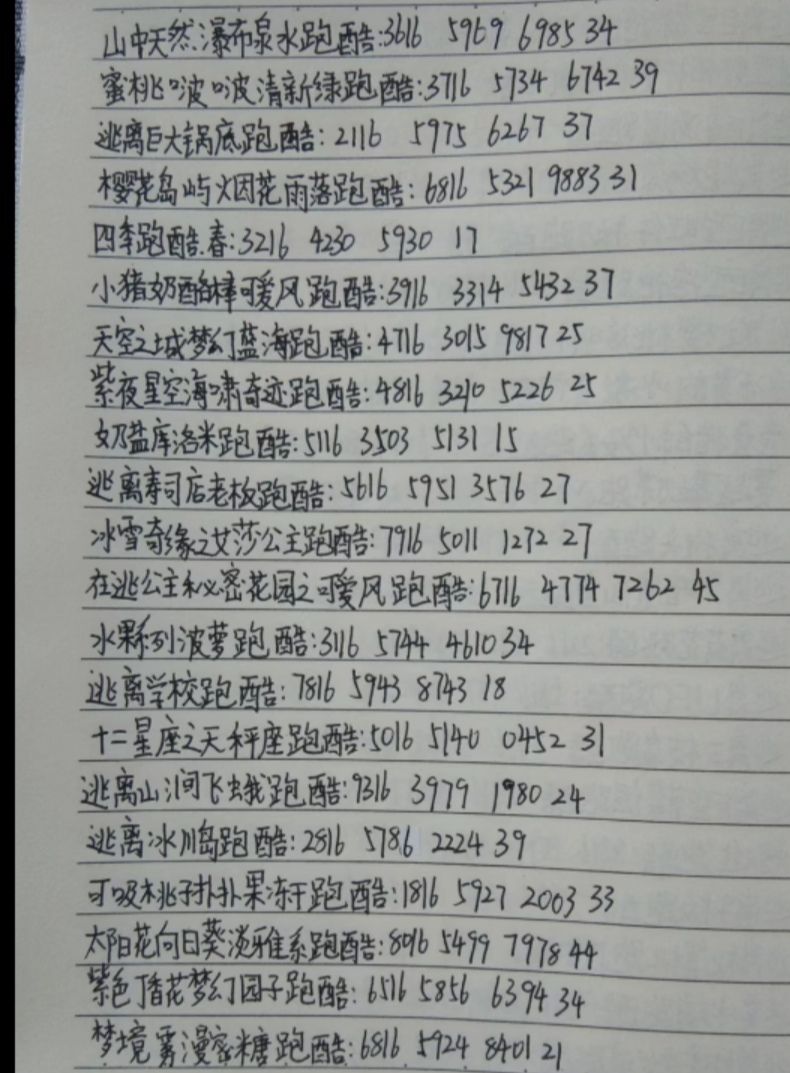 山中天然瀑布泉水跑酷:3616 5969 6985 34
蜜桃啵啵清新绿跑酷:3716 5734 6742 39
逃离巨大锅底跑酷:2116 5975 6267 37
樱花岛屿火因花雨落跑酷:6816 5321 9883 31
四季跑酷.春:3216 4230 5930 17
小猪奶酪棒可爱风跑酷:3916 3314 5432 37
天空之城梦幻蓝海跑酷:4716 3015 9817 25
紫夜星空海啸奇迹跑酷:4816 3210 5226 25
奶盐库洛米跑酷:5116 3503 5131 15
逃离寿司店老板跑酷:5616 5951 3576 27
冰雪奇缘之艾莎公主跑酷:7916 5011 1272 27
在逃公主秘密花园之可爱风跑酷:6716 4774 7262 45
水果系列波萝跑酷:3116 5744 4610 34
逃离学校跑酷:7816 5943 8743 18
十二星座之天秤座跑酷:5016 5140 0452 31
逃离山涧飞蛾跑酷:9316 3979 1980 24
逃离冰川岛跑酷:2816 5786 2224 39
可吸桃子扑扑果冻干跑酷:1816 5927 2003 33
太阳花向日葵淡雅系跑酷:8016 5499 7978 44
紫色丁香花梦幻园子跑酷:6516 5856 6394 34
梦境雾漫蜜糖跑酷:6816 5924 8401 21